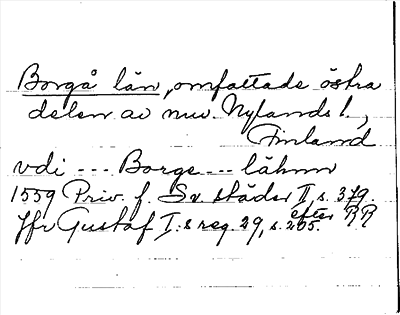 Borgå län, omfattade östra
delen av nuv. Nylands l.,
Finland
vdi --- Borge --- lähnn
1559 Priv. f. Sv städer II, s. 379.
Jfr Gustaf I:s reg. 29, s. 205. efter RR